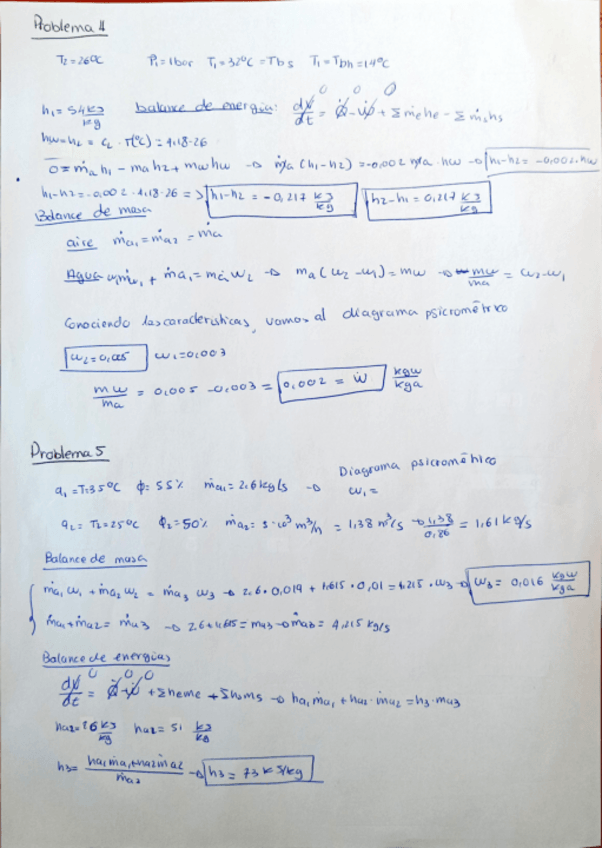 Problema 4
T2=26ºC P1=1bar T1=32ºC=Tbs T1=Tbh=14ºC
h1=54 kJ/kg balance de energia: dU/dt = Q̇-Ẇ + Σṁehe - Σṁshs
0 0 0
hw=hL = cL · T(ºC) = 4,18·26
0 = ṁa h1 - ma h2 + mw hw → ṁa (h1-h2) = -0,002 ṁa · hw → h1-h2 = -0,002·hw
h1-h2 = -0,002 · 4,18 · 26 => h1-h2 = -0,217 kJ/kg h2-h1 = 0,217 kJ/kg
Balance de masa
aire ṁa1 = ṁa2 = ṁa
Agua ω1ṁa1 + ṁw = ṁa ω2 → ma (ω2-ω1) = mw → mw/ma = ω2-ω1
Conociendo las características, vamos al diagrama psicrométrico
ω2=0,005 ω1=0,003
mw/ma = 0,005 - 0,003 = 0,002 = ẇ kgw/kga
Problema 5
Diagrama psicrométrico
a1 = T=35ºC ϕ= 55% ṁa1 = 2,6 kg/s → ω1 =
a2 = T2=25ºC ϕ2=50% ṁa2 = 5·10³ m³/h = 1,38 m³/s → 1,38/0,86 = 1,61 kg/s
Balance de masa
ṁa1 ω1 + ṁa2 ω2 = ṁa3 ω3 → 2,6·0,019 + 1,615·0,01 = 4,215·ω3 → ω3 = 0,016 kgw/kga
ṁa1 + ṁa2 = ṁa3 → 2,6+1,615 = ma3 → ṁa3 = 4,215 kg/s
Balance de energias
0 0 0
dU/dt = Q̇-Ẇ + Σheme + Σhsms → ha1 ṁa1 + ha2 · ṁa2 = h3·ma3
ha2= 51 kJ/kg
h3= ha1ṁa1+ha2ṁa2/ṁa3 → h3 = 73 kJ/kg